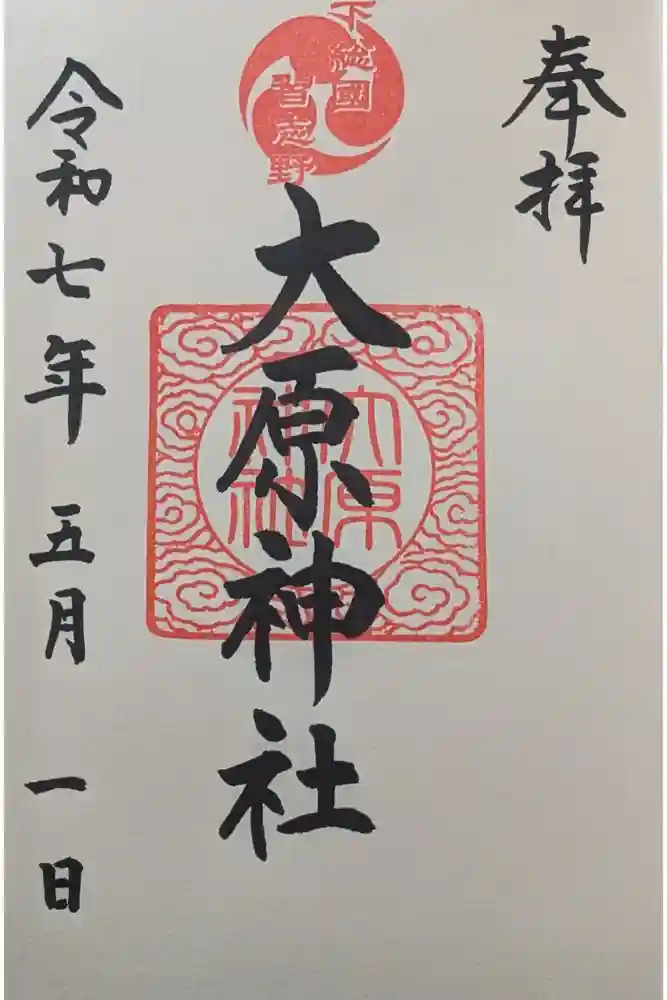 奉拝
下総國
習志野
大原神社
大原
神社
令和七年 五月 一日